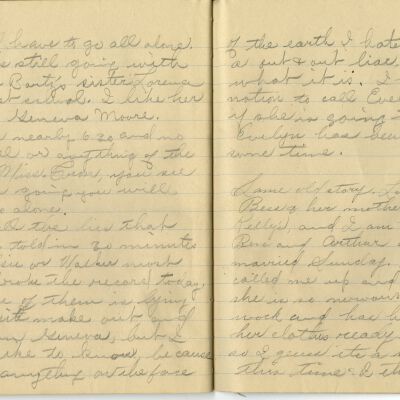 have to go all alone.
s still going with
Bart's sister Lorence
at school. I like her
Geneva Moore.
nearly 6 30 and no
l or anything of the
Miss. Evon, you see
going you will
o alone.
the lies that
told in 20 minutes
sie or Walker never
broke the record today,
e of them is lying
make out and
Geneva, but I
like to know, because
anything on the face
of the earth I hate
a out & out liar
what it is. I
notion to call Eve
if she is going
Evelyn has been
some time.
Same old story.
& her mother
Kelly's, and I am
Rose and Arthur
married Sunday.
called me up and
she is so nervous
work and has
her clothes ready
so I guess its a
this time. I